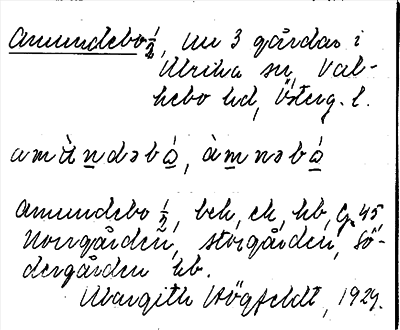 Amundebo 1/2, nu 3 gårdar i
Ulrika sn, Val-
kebo hd, Österg. l.
amùndəbó̱, àmnəbó̱
Amundebo 1/2, beh, ek, hb, G. 45,
Norrgården, Storgården, Sö-
dergården hb.
Margith Högfeldt, 1929.